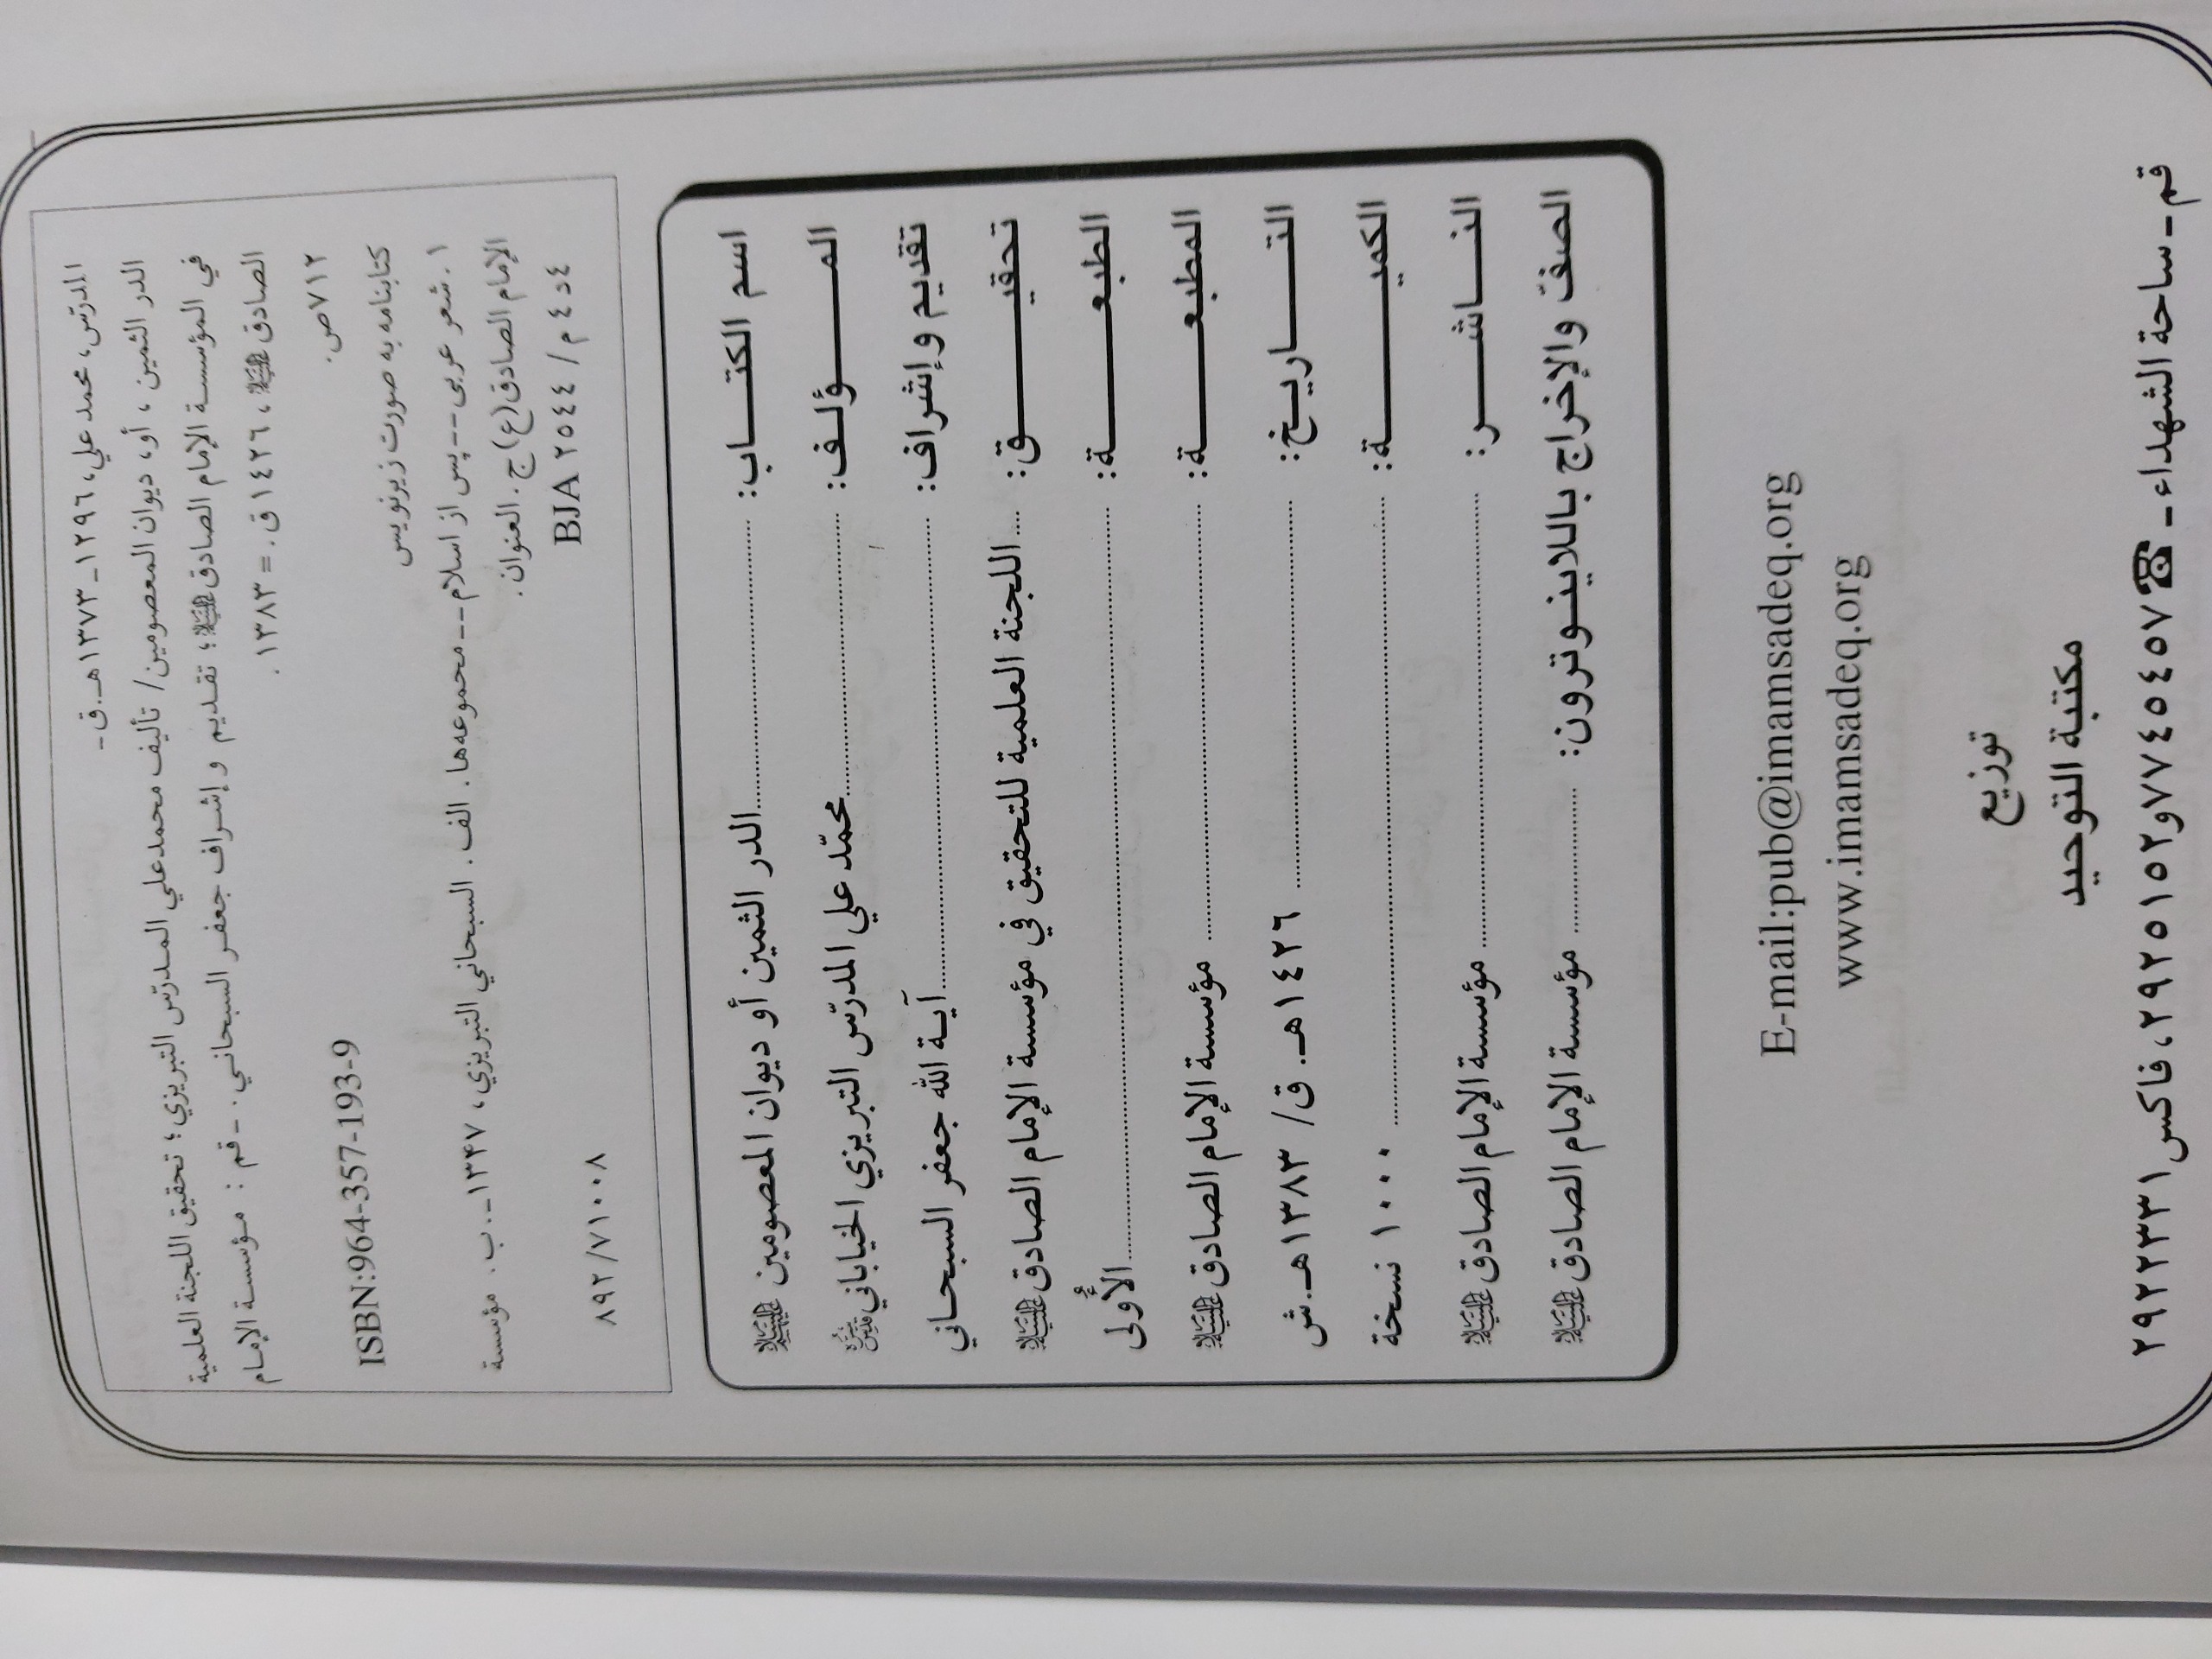 المدرّس، محمد علي، ١٢٩٦ ـ ١٣٧٣هـ.ق ـ
الدر الثمين ، أو، ديوان المعصومين/ تأليف محمدعلي المـدرّس التبريزي؛ تحقيق اللجنة العلمية
في المؤسسـة الإمام الصادق عليه السلام؛ تقـديم و إشـراف جعفـر السبحاني. ـ قم : مـؤسسـة الإمـام
الصادق عليه السلام، ١٤٢٦ق. = ١٣٨٣ .
٧١٢ص.
ISBN:964-357-193-9
كتابنامه به صورت زيرنويس
١ .شعر عربى -- پس از اسلام -- مجموعه‌ها. الف . السبحاني التبريزي، ١٣۴٧ـ . ب . مؤسسة
الإمام الصادق(ع) ج . العنوان.
٤د٤م/ BJA ٢٥٤٤
٨٩٢/٧١٠٠٨
اسم الكتـــاب: الدر الثمين أو ديوان المعصومين عليهم السلام
المـــــؤلـف: محمّد علي المدرّس التبريزي الخياباني قدس سره
تقديم وإشراف: آية الله جعفر السبحاني
تحقيـــــــق: اللجنة العلمية للتحقيق في مؤسسة الإمام الصادق عليه السلام
الطبعـــــــة: الأُولى
المطبعـــــــة: مؤسسة الإمام الصادق عليه السلام
التـــــاريـخ: ١٤٢٦هـ. ق/ ١٣٨٣هـ.ش
الكميـــــــة: ١٠٠٠ نسخة
النـــاشـــر: مؤسسة الإمام الصادق عليه السلام
الصفّ والإخراج باللاينـوترون: مؤسسة الإمام الصادق عليه السلام
E-mail:pub@imamsadeq.org
www.imamsadeq.org
توزيع
مكتبة التوحيد
قم ـ ساحة الشهداء ـ ☎ ٧٧٤٥٤٥٧و٢٩٢٥١٥٢، فاكس ٢٩٢٢٣٣١